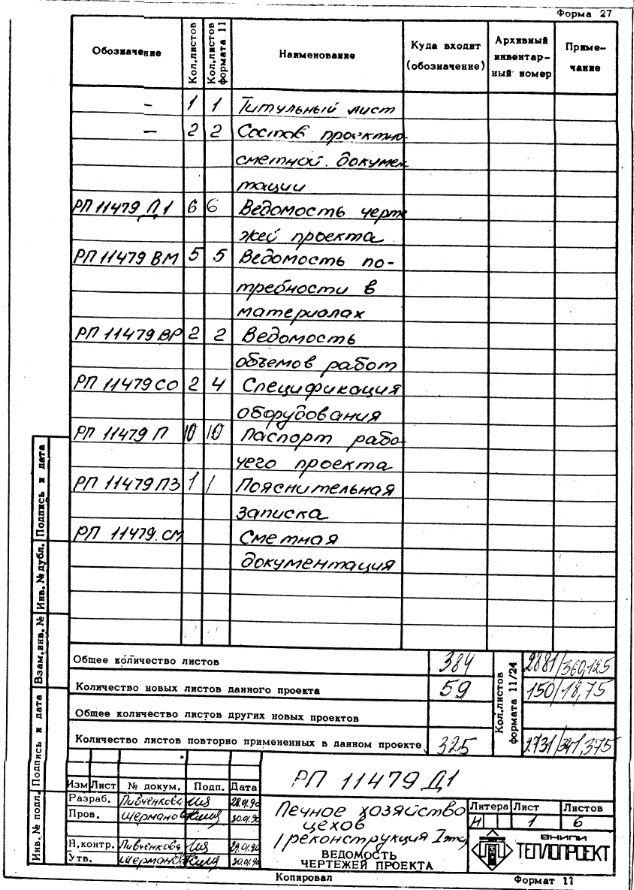 Форма 27
Обозначение Кол.листов Кол.листов формата 11 Наименование Куда входит (обозначение) Архивный инвентарный номер Примечание
– 1 1 Титульный лист
– 2 2 Состав проектно
сметной докумен
тации
РП 11479 Д1 6 6 Ведомость черте
жей проекта
РП 11479 ВМ 5 5 Ведомость по-
требности в
материалах
РП 11479 ВР 2 2 Ведомость
объемов работ
РП 11479 СО 2 4 Спецификация
оборудования
РП 11479 П 10 10 Паспорт рабо
чего проекта
РП 11479 ПЗ 1 1 Пояснительная
записка
РП 11479. СМ Сметная
документация
Общее количество листов 384 Кол.листов формата 11/24 2881/360,125
Количество новых листов данного проекта 59 150/18,75
Общее количество листов других новых проектов
Количество листов повторно примененных в данном проекте 325 2731/341,375
Инв. № подл. Подпись и дата Взам.инв. № Инв. № дубл. Подпись и дата
РП 11479 Д1
Изм Лист № докум. Подп. Дата
Разраб. Ливченкова 28.01.90
Пров. Шерманов 30.01.90
Н.контр. Ливченкова 29.01.90
Утв. Шерманов 30.01.90
Печное хозяйство
цехов
/реконструкция I этап
ВЕДОМОСТЬ
ЧЕРТЕЖЕЙ ПРОЕКТА
Литера Лист Листов
Н 1 6
ВНИПИ
ТЕПЛОПРОЕКТ
Копировал Формат 11